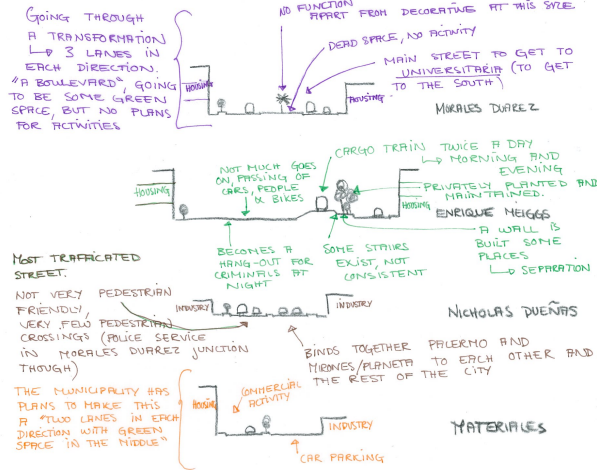 GOING THROUGH
A TRANSFORMATION
↳ 3 LANES IN
EACH DIRECTION.
"A BOULEVARD", GOING
TO BE SOME GREEN
SPACE, BUT NO PLANS
FOR ACTIVITIES
NO FUNCTION
APART FROM DECORATIVE AT THIS SIZE
DEAD SPACE, NO ACTIVITY
MAIN STREET TO GET TO
UNIVERSITARIA (TO GET
TO THE SOUTH)
HOUSING
HOUSING
MORALES DUAREZ
NOT MUCH GOES
ON, PASSING OF
CARS, PEOPLE
& BIKES
CARGO TRAIN TWICE A DAY
↳ MORNING AND
EVENING
PRIVATELY PLANTED AND
MAINTAINED.
HOUSING
HOUSING
ENRIQUE MEIGGS
A WALL IS
BUILT SOME
PLACES
↳ SEPARATION
BECOMES A
HANG-OUT FOR
CRIMINALS AT
NIGHT
SOME STAIRS
EXIST, NOT
CONSISTENT
MOST TRAFFICATED
STREET.
NOT VERY PEDESTRIAN
FRIENDLY,
VERY FEW PEDESTRIAN
CROSSINGS (POLICE SERVICE
IN MORALES DUAREZ JUNCTION
THOUGH)
INDUSTRY
INDUSTRY
NICHOLAS DUEÑAS
BINDS TOGETHER PALERMO AND
MIRONES/PLANETA TO EACH OTHER AND
THE REST OF THE CITY
THE MUNICIPALITY HAS
PLANS TO MAKE THIS
A "TWO LANES IN EACH
DIRECTION WITH GREEN
SPACE IN THE MIDDLE"
HOUSING
COMMERCIAL
ACTIVITY
INDUSTRY
CAR PARKING
MATERIALES